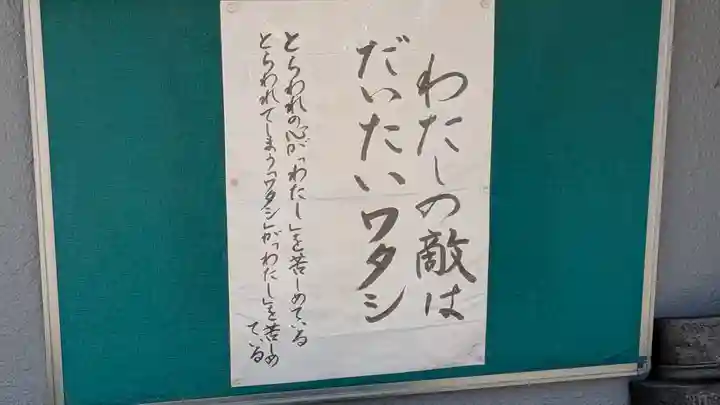 わたしの敵は
だいたいワタシ
とらわれの心が「わたし」を苦しめている
とらわれてしまう「ワタシ」が「わたし」を苦しめ
ている